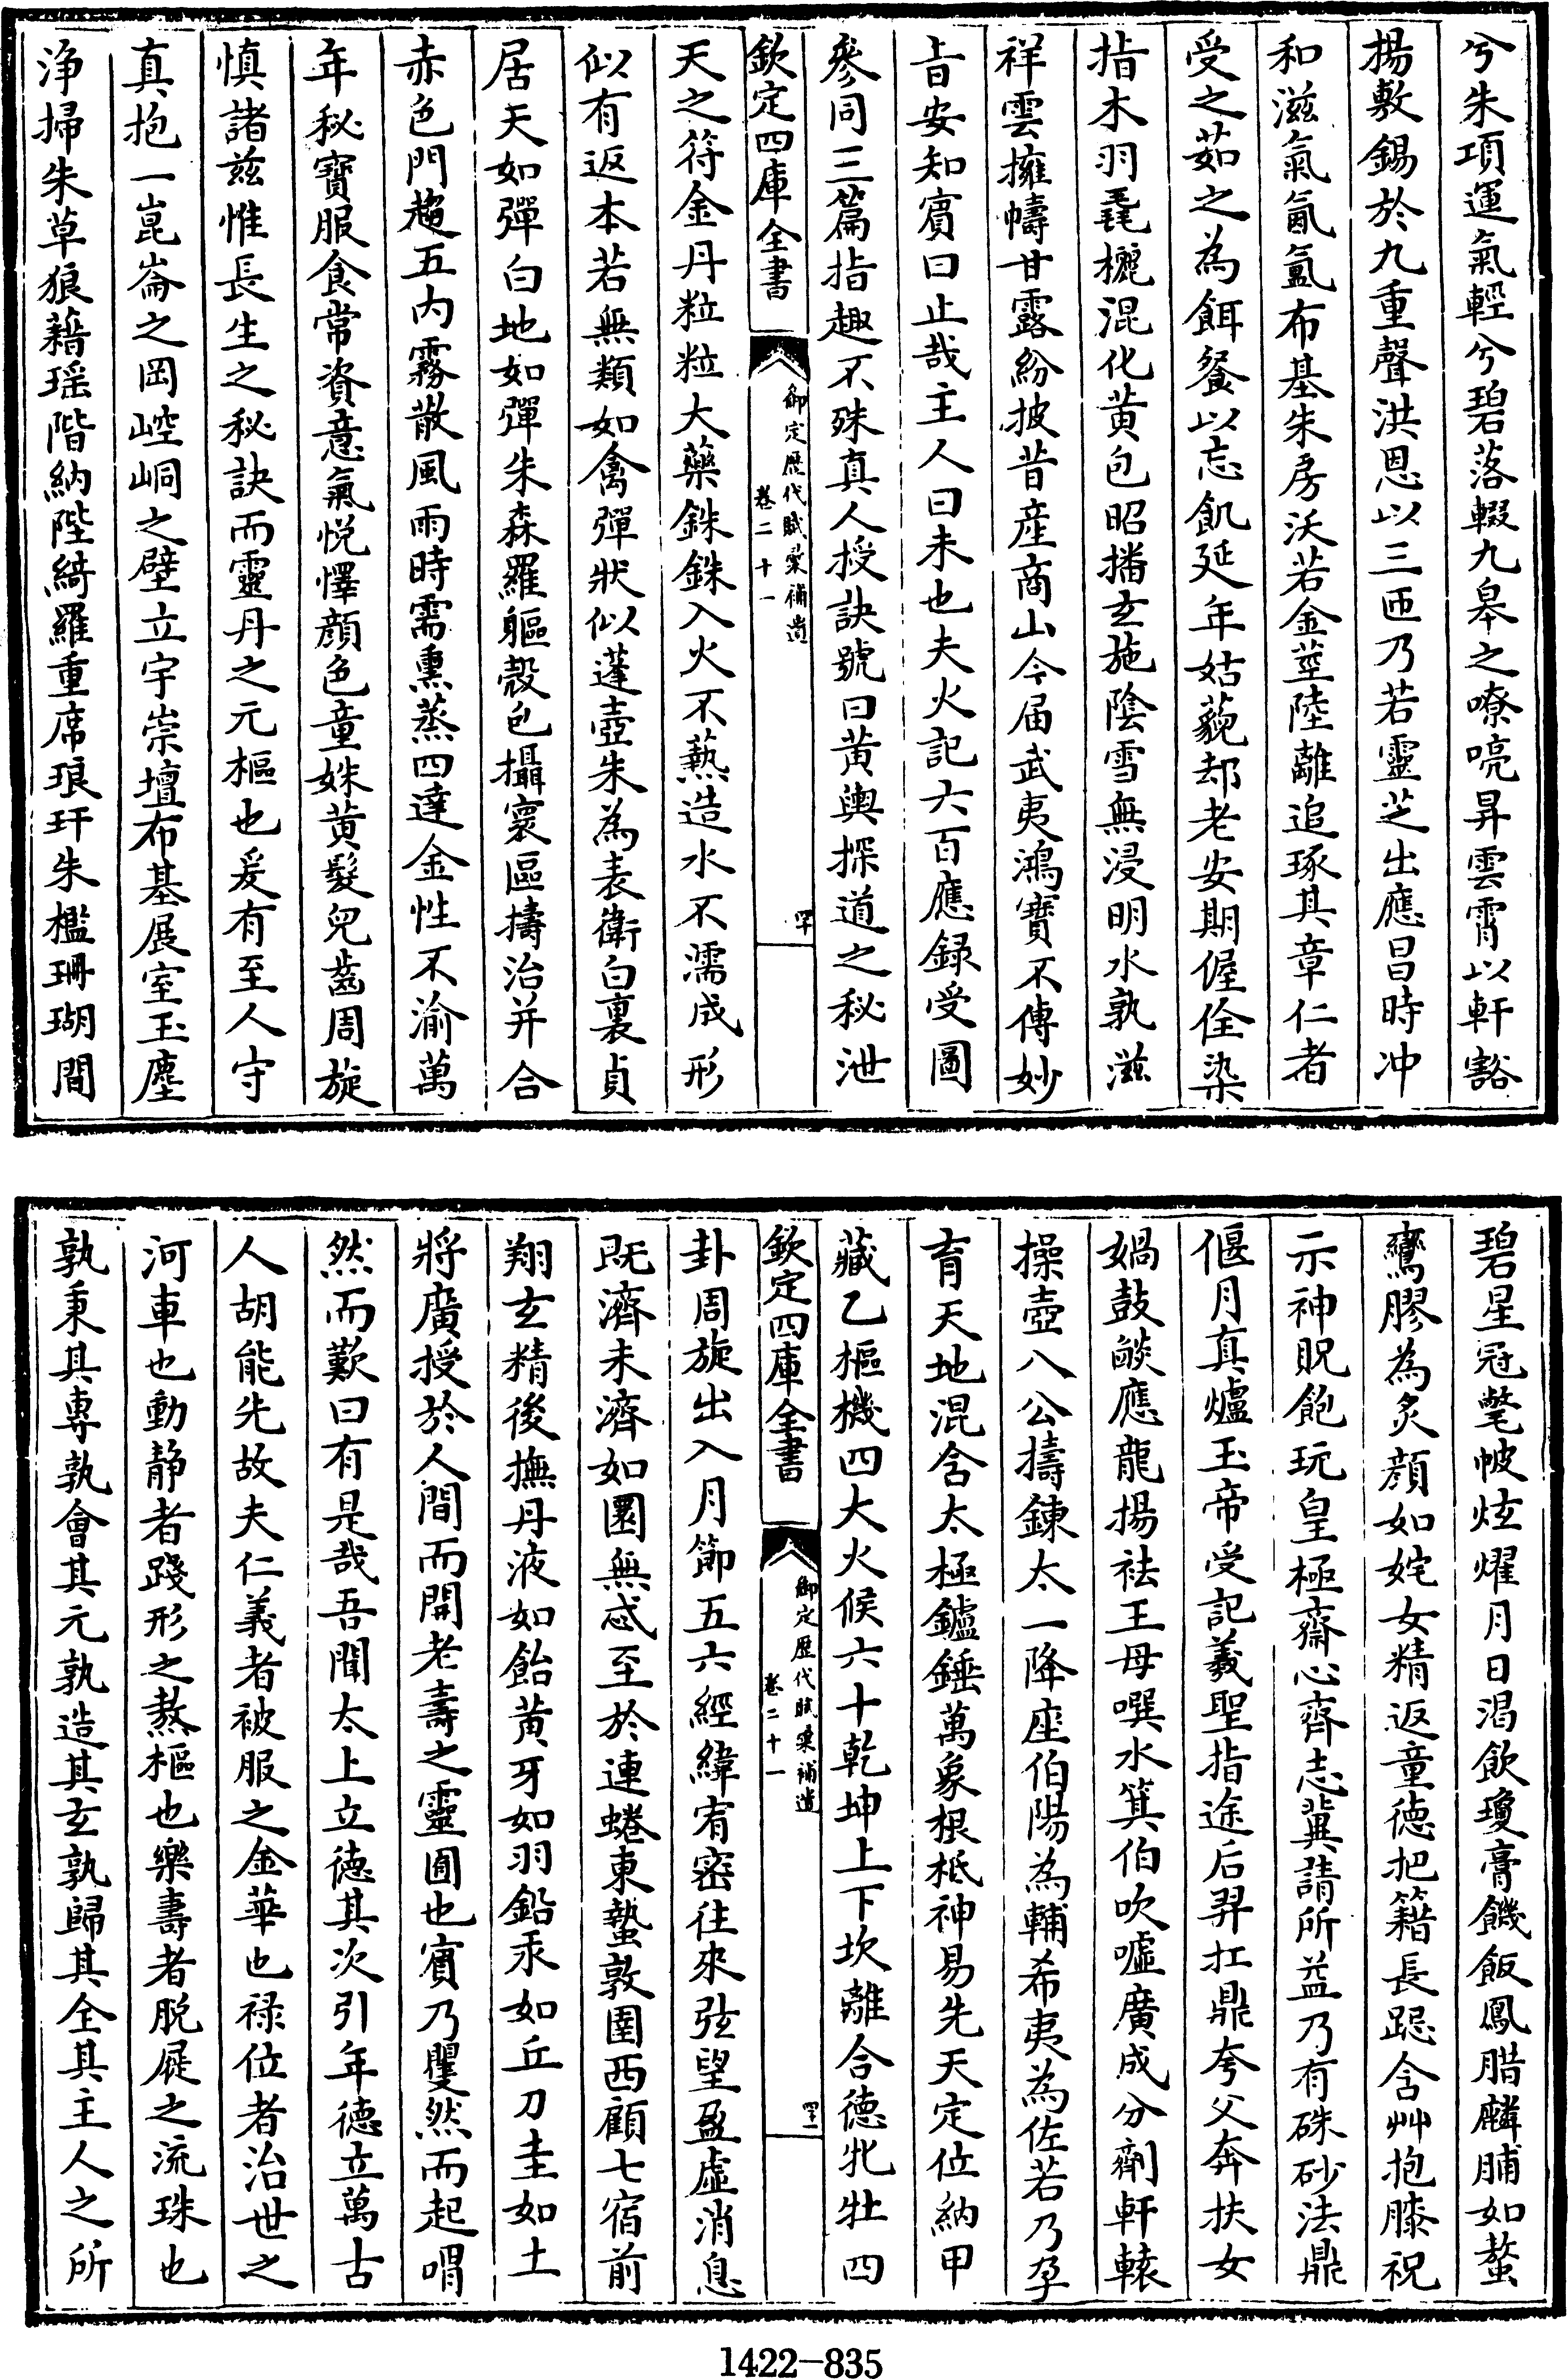 兮朱項運氣輕兮碧落輟九皋之嘹喨昇雲霄以軒豁
揚敷錫於九重聲洪恩以三匝乃若靈芝出應昌時冲
和滋氣氤氲布基朱房沃若金莖陸離追琢其章仁者
受之茹之為餌餐以忘飢延年姑藐却老安期偓佺染
指木羽毳㰚混化黄包昭播玄施陰雪無浸明水孰滋
祥雲擁幬甘露紛披昔産商山今届武夷鴻寶不傳妙
旨安知賓曰止哉主人曰未也夫火記六百應録受圖
參同三篇指趣不殊真人授訣號曰黄輿探道之秘泄
欽定四庫全書
御定歷代賦彙補遺
卷二十一
四十
天之符金丹粒粒大藥銖銖入火不爇造水不濡成形
似有返本若無類如禽彈狀似蓬壺朱為表衛白裏貞
居天如彈白地如彈朱森羅軀殼包攝寰區擣治并合
赤色門趨五内霧散風雨時需熏蒸四達金性不渝萬
年秘寳服食常資意氣悦懌顔色童姝黄髮兒齒周旋
慎諸兹惟長生之秘訣而靈丹之元樞也爰有至人守
真抱一崑崙之岡崆峒之壁立宇崇壇布基展室玉塵
浄掃朱草狼藉瑶階納陛綺羅重席琅玕朱檻珊瑚間
碧星冠氅帔炫燿月日渴飲瓊膏饑飯鳳腊麟脯如螯
鸞膠為炙顔如姹女精返童德把籍長跽含艸抱膝祝
示神貺飽玩皇極齋心齊志兾請所益乃有硃砂法鼎
偃月真爐玉帝受記羲聖指途后羿扛鼎夸父奔扶女
媧鼓燄應龍揚袪王母噀水箕伯吹嘘廣成分劑軒轅
操壺八公擣錬太一降座伯陽為輔希夷為佐若乃孕
育天地混含太極鑪錘萬象根柢神易先天定位納甲
藏乙樞機四大火候六十乾坤上下坎離合德牝牡四
欽定四庫全書
御定歷代賦彙補遺
卷二十一
四十一
卦周旋出入月節五六經緯宥密往來弦望盈虚消息
既濟未濟如圜無忒至於連蜷東蟄敦圉西顧七宿前
翔玄精後撫丹液如飴黄牙如羽鉛汞如丘刀圭如土
將廣授於人間而開老壽之靈囿也賓乃瞿然而起喟
然而歎曰有是哉吾聞太上立德其次引年德立萬古
人胡能先故夫仁義者被服之金華也禄位者治世之
河車也動靜者踐形之熬樞也樂壽者脱屣之流珠也
孰秉其專孰會其元孰造其玄孰歸其全其主人之所
1422-835